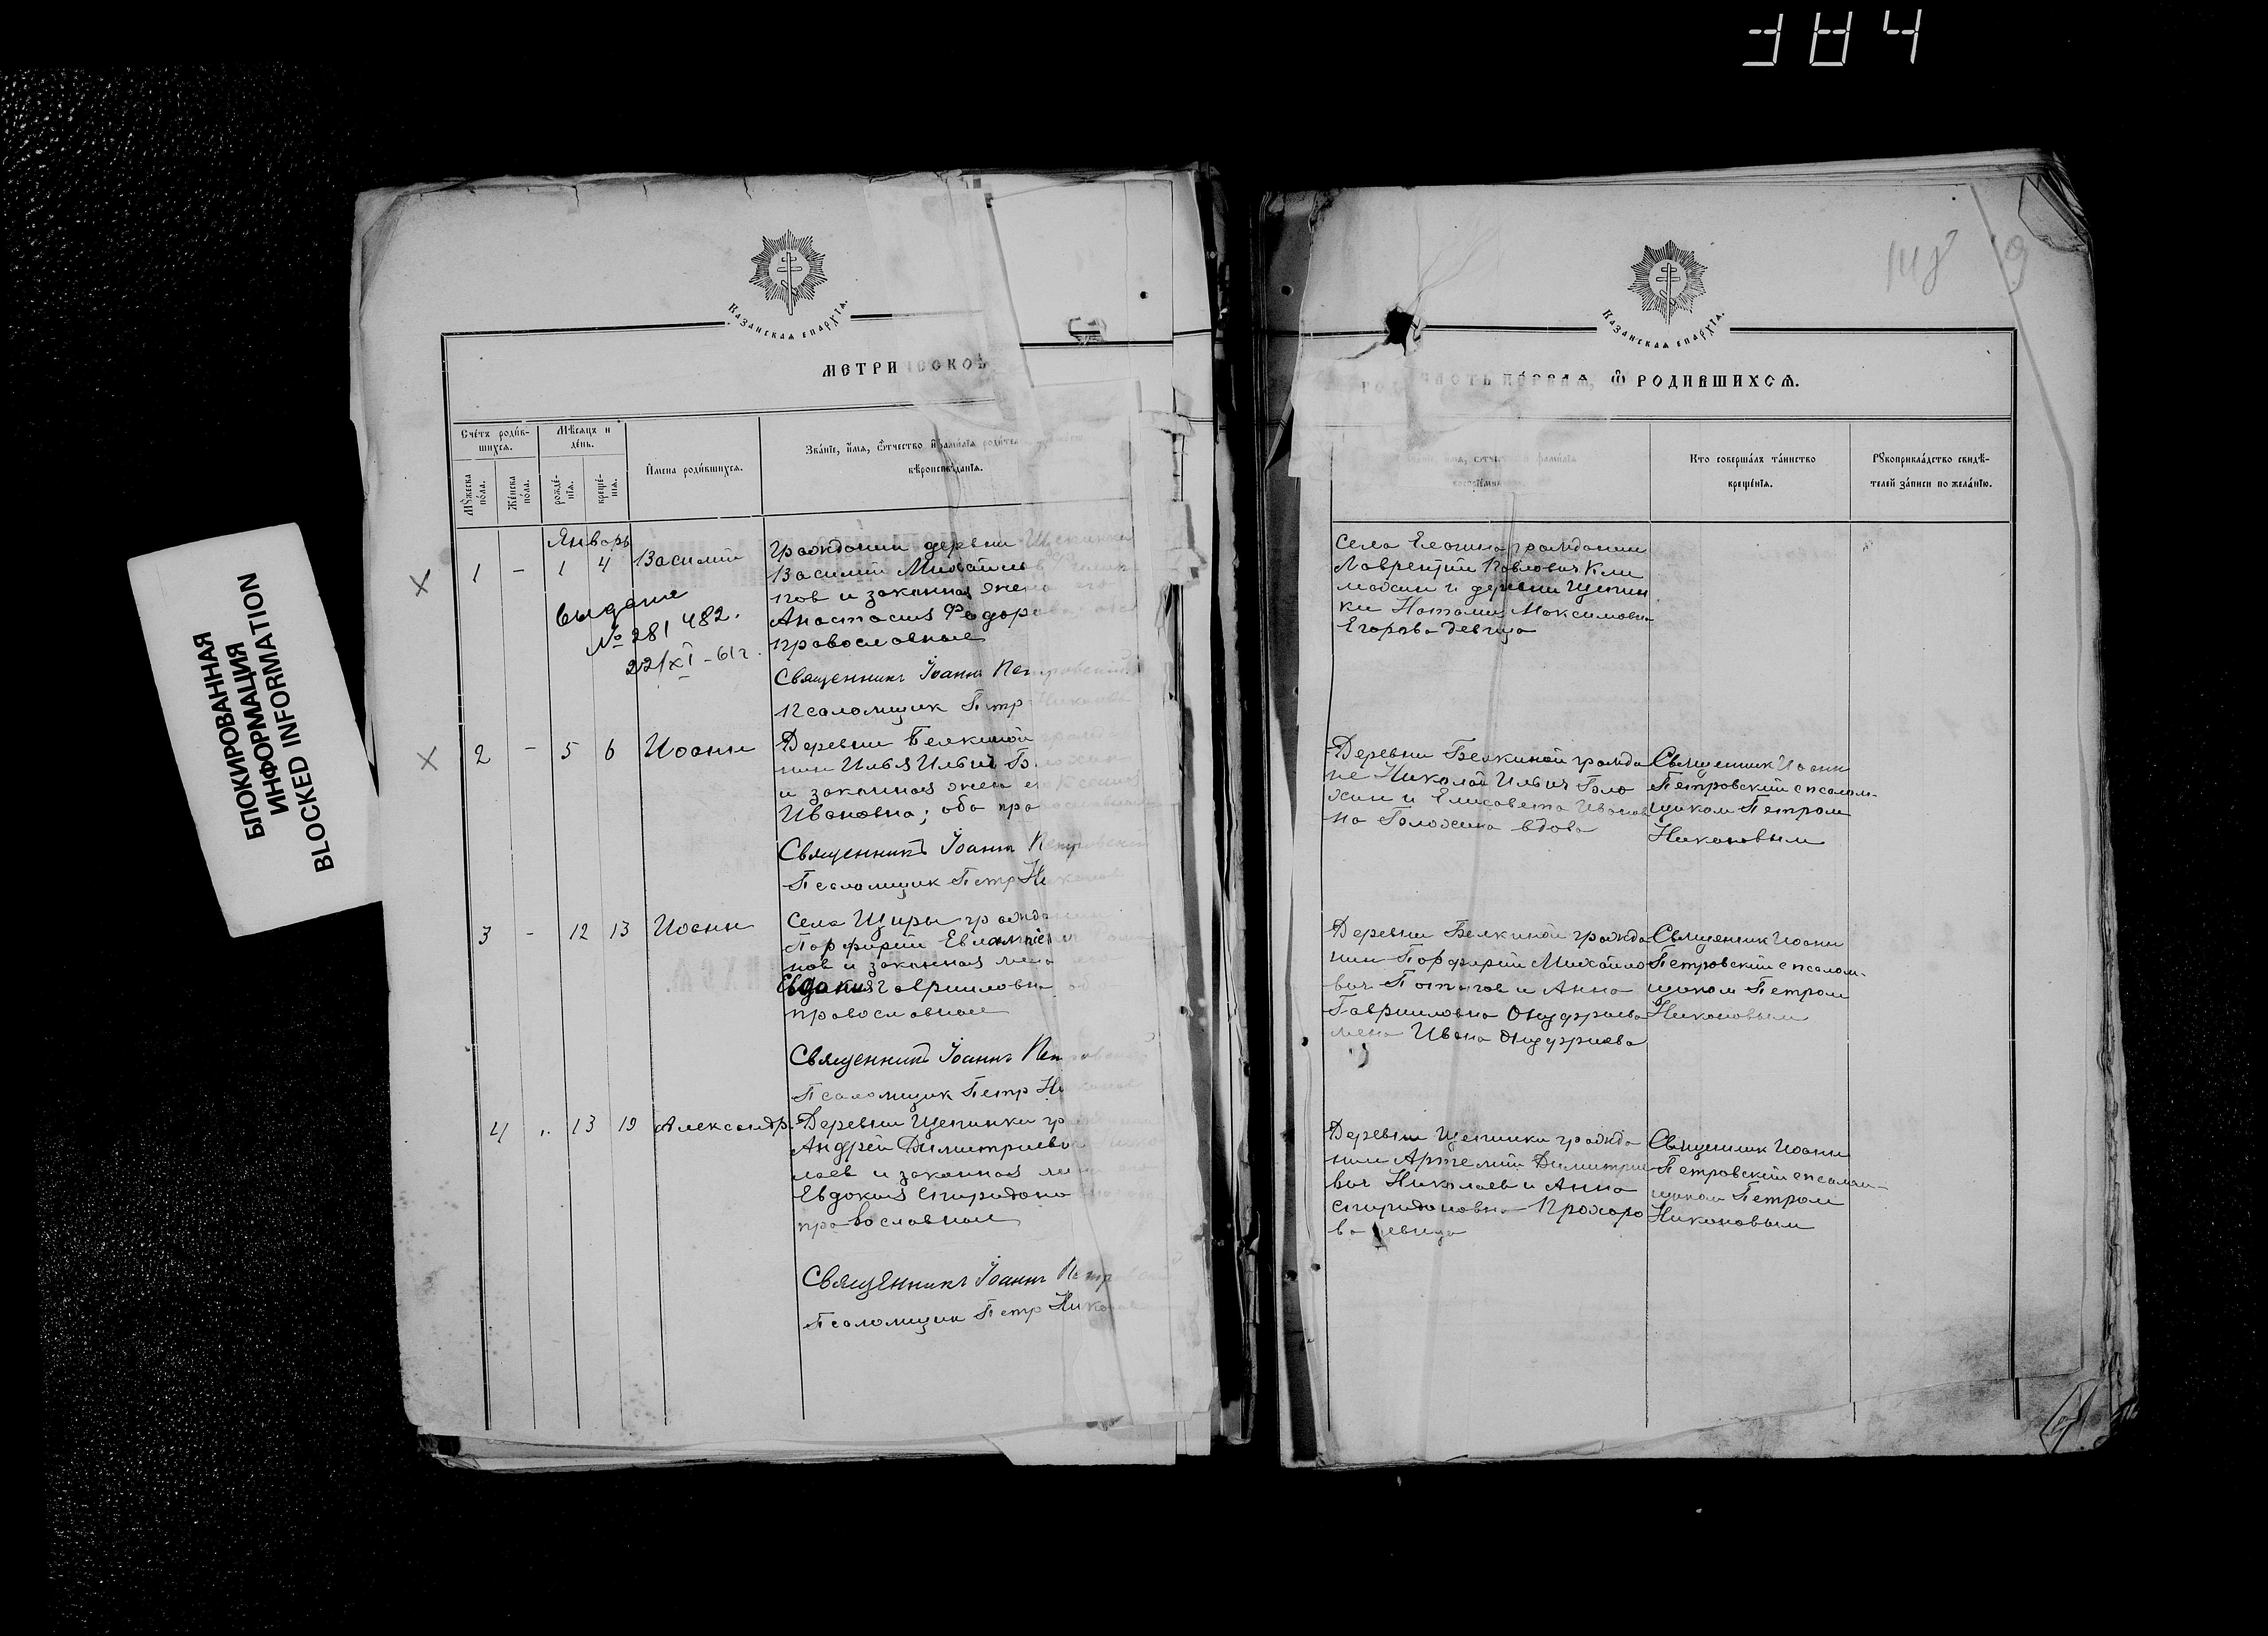 384
БЛОКИРОВАННАЯ
ИНФОРМАЦИЯ
BLOCKED INFORMATION
КАЗАНСКАЯ ЕПАРХІЯ.
МЕТРИЧЕСКОЕ
Счетъ родив-
шихся.
Мѣсяцъ и
день.
Мужеска
пола.
Женска
пола.
рожде-
нія.
креще-
нія.
Имена родившихся.
Званіе, имя, отчество и фамилія
вѣроисповѣданія.
Январь
1 - 1 4 Василий
Гражданин деревни Щепинки
Василий Михайлов
и законная жена его
Анастасия Федорова
православные
выдано
№ 281482.
22/XI-61г.
Священникъ Іоаннъ Петровский
Псаломщик Петр Никонов
2 - 5 6 Иоанн
Деревни Белкиной гражда
нин Илья Ильич
и законная жена его Ксения
Ивановна; оба православные
Священникъ Іоаннъ Петровский
Псаломщик Петр Никонов
3 - 12 13 Иоанн
Села Щиры гражда
Порфирий Евлампиев
нов и законная жена
Евдокия Гаврииловна
православные
Священникъ Іоаннъ Петровский
Псаломщик Петр Никонов
4 13 19 Александр.
Деревни Щепинки гр
Андрей Димитриев
лаев и законная
Евдокия Спиридоно
православные
Священникъ Іоаннъ Петровский
Псаломщик Петр Никонов
КАЗАНСКАЯ ЕПАРХІЯ.
ЧАСТЬ ПЕРВАЯ, Ѿ РОДИВШИХСЯ.
имя, отчество фамилія
Кто совершалъ таинство
крещенія.
Рукоприкладство свидѣ-
телей записи по желанію.
Села гражданин
Лаврентий Павлович Кли
и деревни Щепин
ки Наталия Максимовна
Егорова девица
Деревни Белкиной гражда
не Николай Ильич Голо
хин и Елисавета Иванов
на Голохина вдова
Священник Иоанн
Петровский с псалом-
щиком Петром
Никоновым
Деревни Белкиной гражда
нин Порфирий Михайло
вич Потапов и Анна
Гаврииловна Онуфриева
жена Ивана Онуфриева
Священник Иоанн
Петровский с псалом-
щиком Петром
Никоновым
Деревни Щепинки гражда
нин Артемий Димитрие
вич Николаев и Анна
Спиридоновна Прохоро
ва девица
Священник Иоанн
Петровский с псалом-
щиком Петром
Никоновым